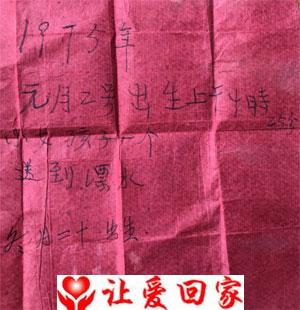 1975年
元月2号出生上午4時25分
女孩子一个
送到溧水
冬月二十出生.
让爱回家